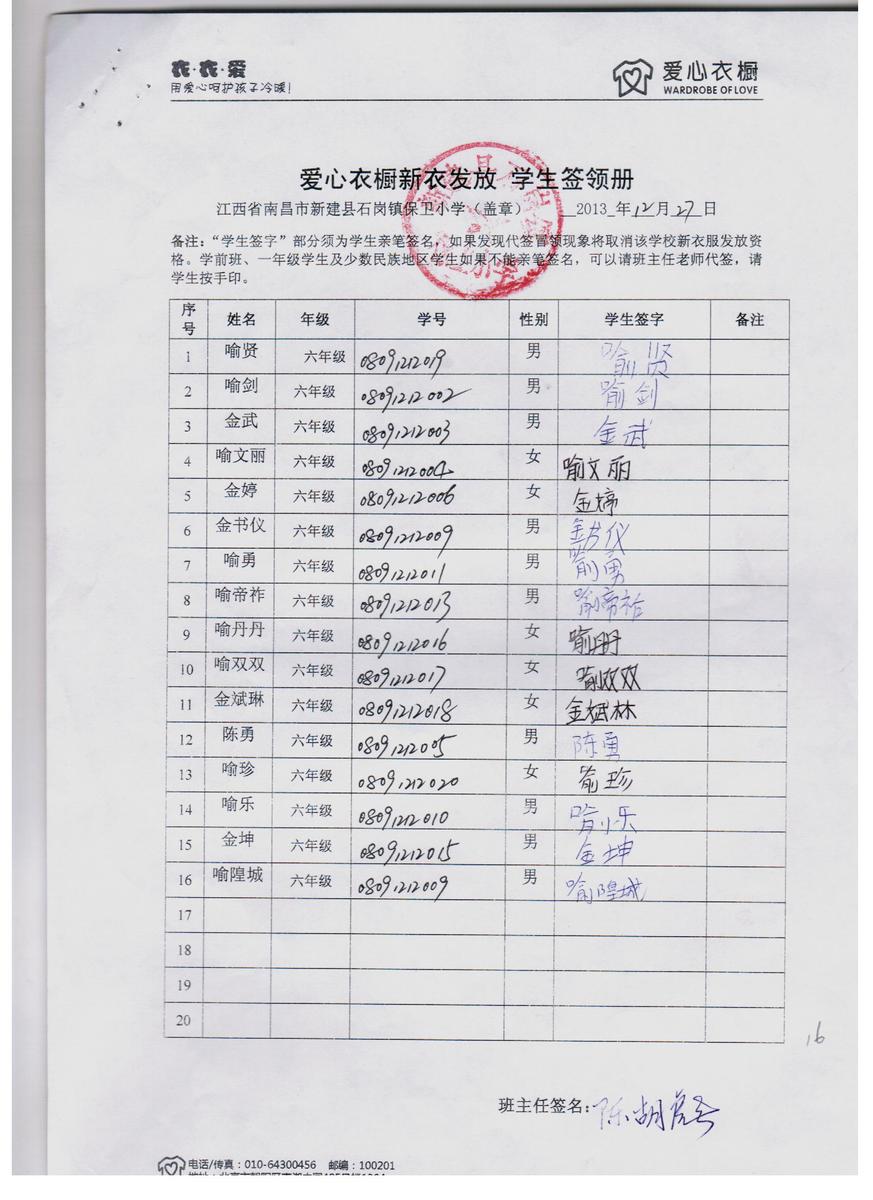 衣·衣·爱
用爱心呵护孩子冷暖!
爱心衣橱
WARDROBE OF LOVE
爱心衣橱新衣发放 学生签领册
江西省南昌市新建县石岗镇保卫小学（盖章） 2013 年 12 月 27 日
备注：“学生签字”部分须为学生亲笔签名，如果发现代签冒领现象将取消该学校新衣服发放资
格。学前班、一年级学生及少数民族地区学生如果不能亲笔签名，可以请班主任老师代签，请
学生按手印。
序号 姓名 年级 学号 性别 学生签字 备注
1 喻贤 六年级 08091212019 男 喻贤
2 喻剑 六年级 08091212002 男 喻剑
3 金武 六年级 08091212003 男 金武
4 喻文丽 六年级 08091212004 女 喻文丽
5 金婷 六年级 08091212006 女 金婷
6 金书仪 六年级 08091212009 男 金书仪
7 喻勇 六年级 08091212011 男 喻勇
8 喻帝祚 六年级 08091212013 男 喻帝祚
9 喻丹丹 六年级 08091212016 女 喻丹丹
10 喻双双 六年级 08091212017 女 喻双双
11 金斌琳 六年级 08091212018 女 金斌林
12 陈勇 六年级 08091212005 男 陈勇
13 喻珍 六年级 08091212020 女 喻珍
14 喻乐 六年级 08091212010 男 喻小乐
15 金坤 六年级 08091212015 男 金坤
16 喻隍城 六年级 08091212009 男 喻隍城
17
18
19
20
16
班主任签名: 陈胡
电话/传真：010-64300456 邮编：100201